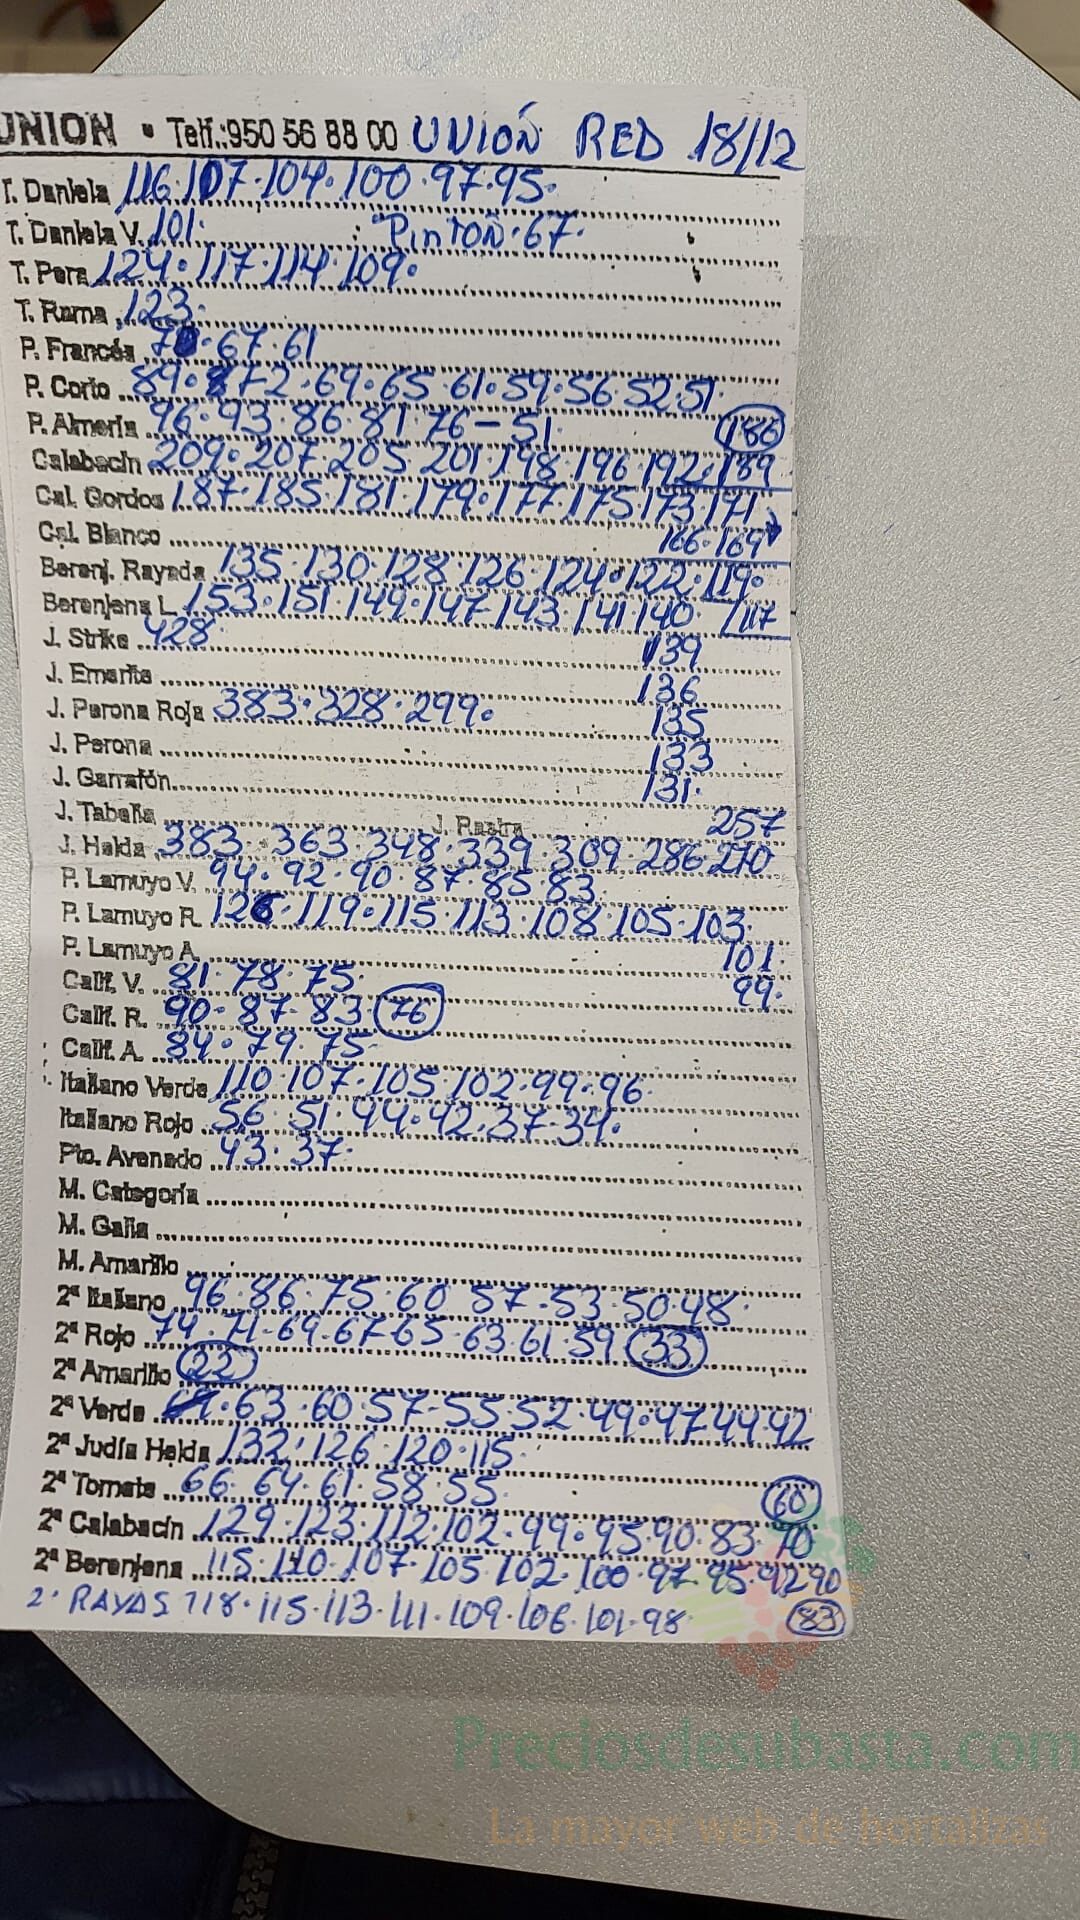 UNION • Telf.:950 56 88 00 UNIÓN RED 18/12
T. Daniela 116·107·104·100·97·95·
T. Daniela V. 101· PinTOÑ·67·
T. Pera 124·117·114·109·
T. Rama 123·
P. Francés 70·67·61
P. Corto 89·87·72·69·65·61·59·56·52·51·
P. Almería 96·93·86·81·76-51· 186
Calabacín 209·207·205·201·198·196·192·189
Cal. Gordos 187·185·181·179·177·175·173·171
Cal. Blanco 166·169
Berenj. Rayada 135·130·128·126·124·122·119·
Berenjena L. 153·151·149·147·143·141·140· 117
J. Strike 428· 139
J. Emerite 136
J. Perona Roja 383·328·299· 135
J. Perona 133
J. Garrafón 131·
J. Tabella J. Rastra 257
J. Helda 383·363·348·339·309·286·270
P. Lamuyo V. 94·92·90·87·85·83
P. Lamuyo R. 126·119·115·113·108·105·103
P. Lamuyo A. 101
Calif. V. 81·78·75· 99·
Calif. R. 90·87·83·76
Calif. A. 84·79·75
Italiano Verde 110·107·105·102·99·96·
Italiano Rojo 56·51·44·42·37·34·
Pto. Avenado 43·37·
M. Categoría
M. Galia
M. Amarillo
2ª Italiano 96·86·75·60·57·53·50·48·
2ª Rojo 74·71·69·67·65·63·61·59 33
2ª Amarillo 22
2ª Verde 63·60·57·55·52·49·47·44·42
2ª Judía Helda 132·126·120·115·
2ª Tomate 66·64·61·58·55· 60
2ª Calabacín 129·123·112·102·99·95·90·83·70
2ª Berenjena 115·110·107·105·102·100·97·95·92·90
2· RAYAS 118·115·113·111·109·106·101·98· 83
Preciosdesubasta.com
La mayor web de hortalizas